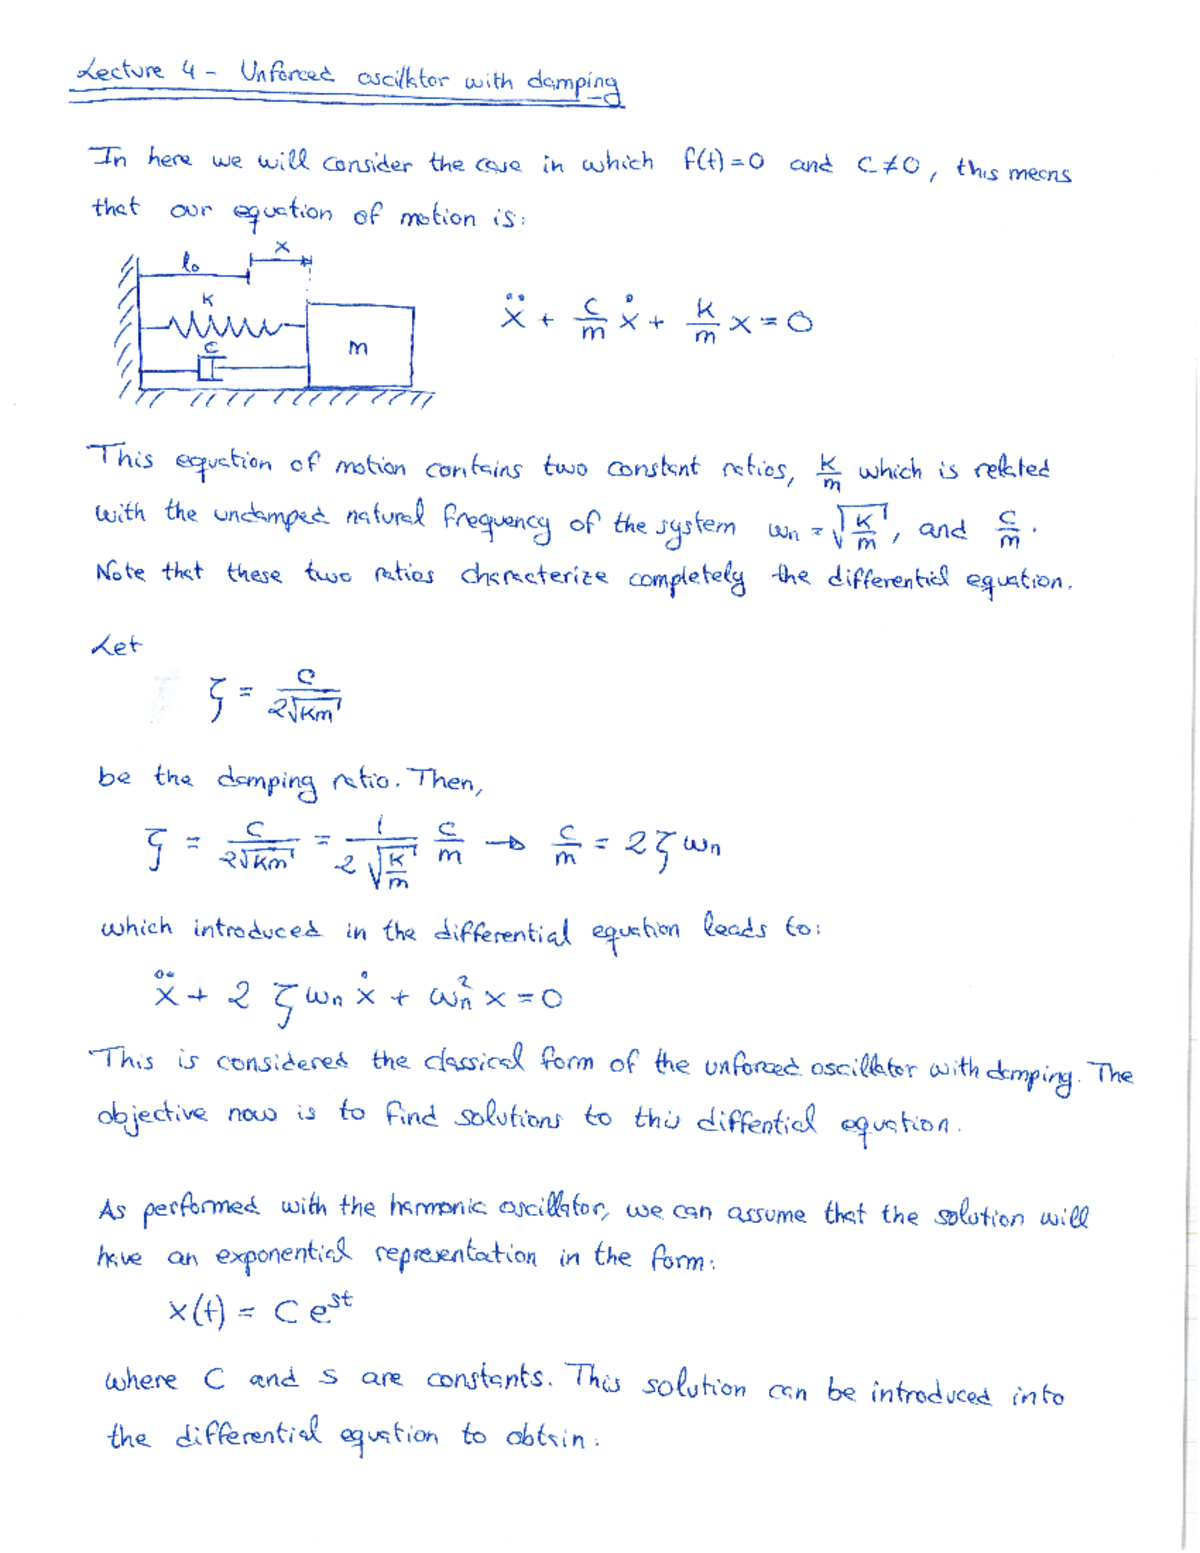 Lecture 4 - Unforced oscillator with damping
In here we will consider the case in which f(t)=0 and c≠0, this means
that our equation of motion is:
x
l₀
k
c
m
ẍ + c/m ẋ + k/m x = 0
This equation of motion contains two constant ratios, k/m which is related
with the undamped natural frequency of the system ωn = √(k/m), and c/m.
Note that these two ratios characterize completely the differential equation.
Let
ζ = c/(2√(km))
be the damping ratio. Then,
ζ = c/(2√(km)) = 1/(2√(k/m)) c/m → c/m = 2ζωn
which introduced in the differential equation leads to:
ẍ + 2 ζωn ẋ + ωn² x = 0
This is considered the classical form of the unforced oscillator with damping. The
objective now is to find solutions to this diffential equation.
As performed with the harmonic oscillator, we can assume that the solution will
have an exponential representation in the form:
x(t) = C e^st
where C and s are constants. This solution can be introduced into
the differential equation to obtain: